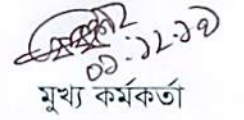 ০১.১২.১৩
মুখ্য কর্মকর্তা